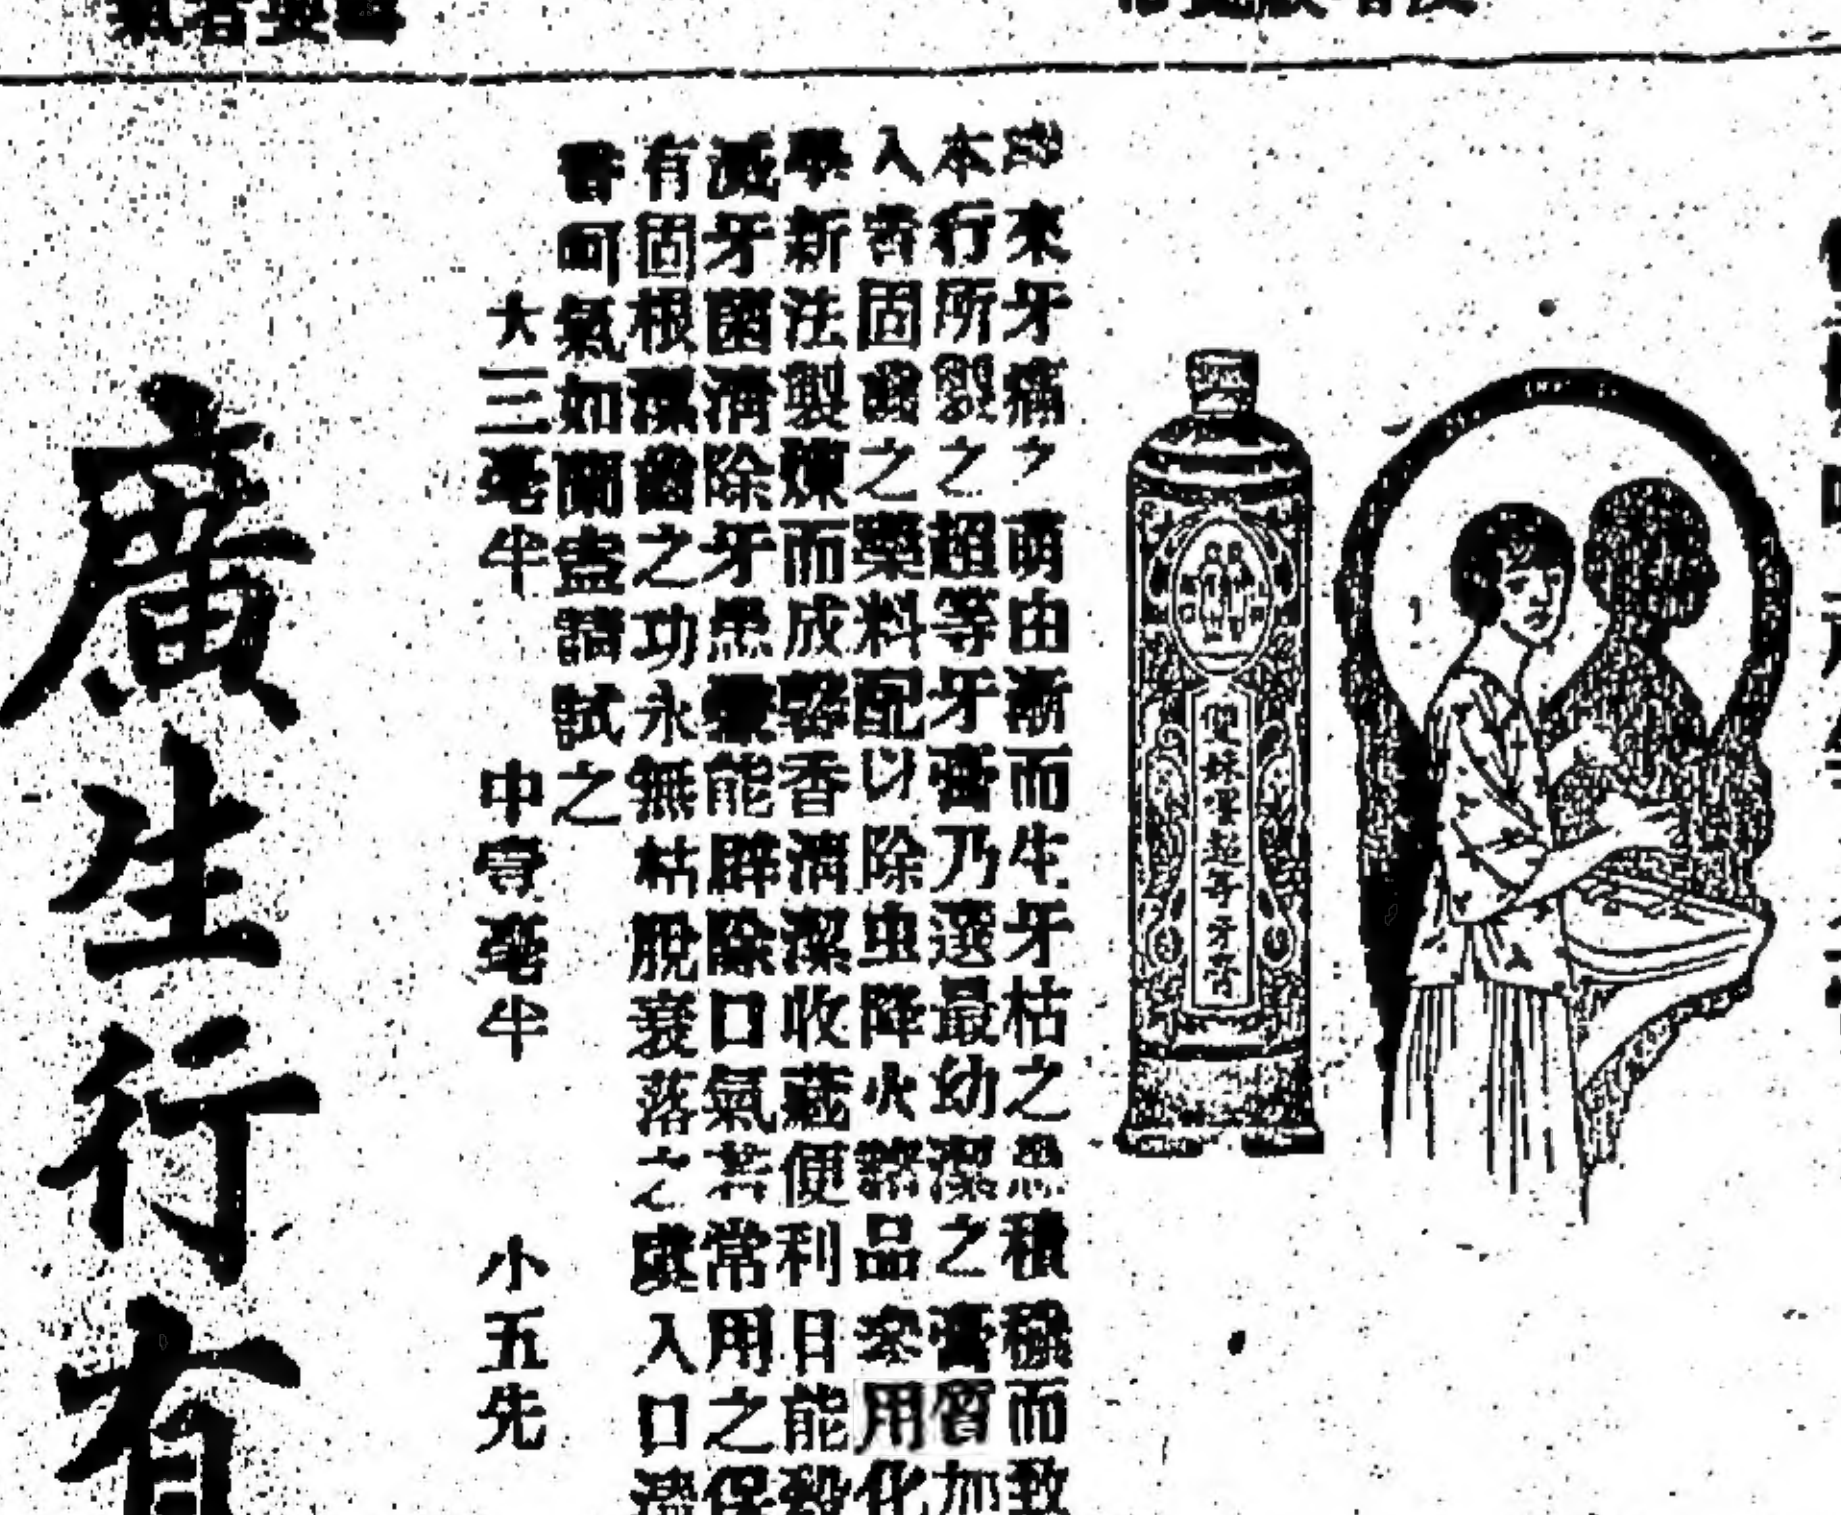 來牙痛之萌由漸而生牙枯之患積穢而致
本行所製之超等牙膏乃選最幼潔之膏質加
入香固齒之藥料配以除虫降火藥品參用化
學新法製煉而成馨香清潔收藏便利日能殺
滅牙菌清除牙患兼能辟除口氣若常用之保
有固根潔齒之功永無枯脫衰落之虞入口清
香呵氣如蘭盍請試之
大三毫半 中壹毫半 小五先
廣生行有
雙妹嚜超等牙膏